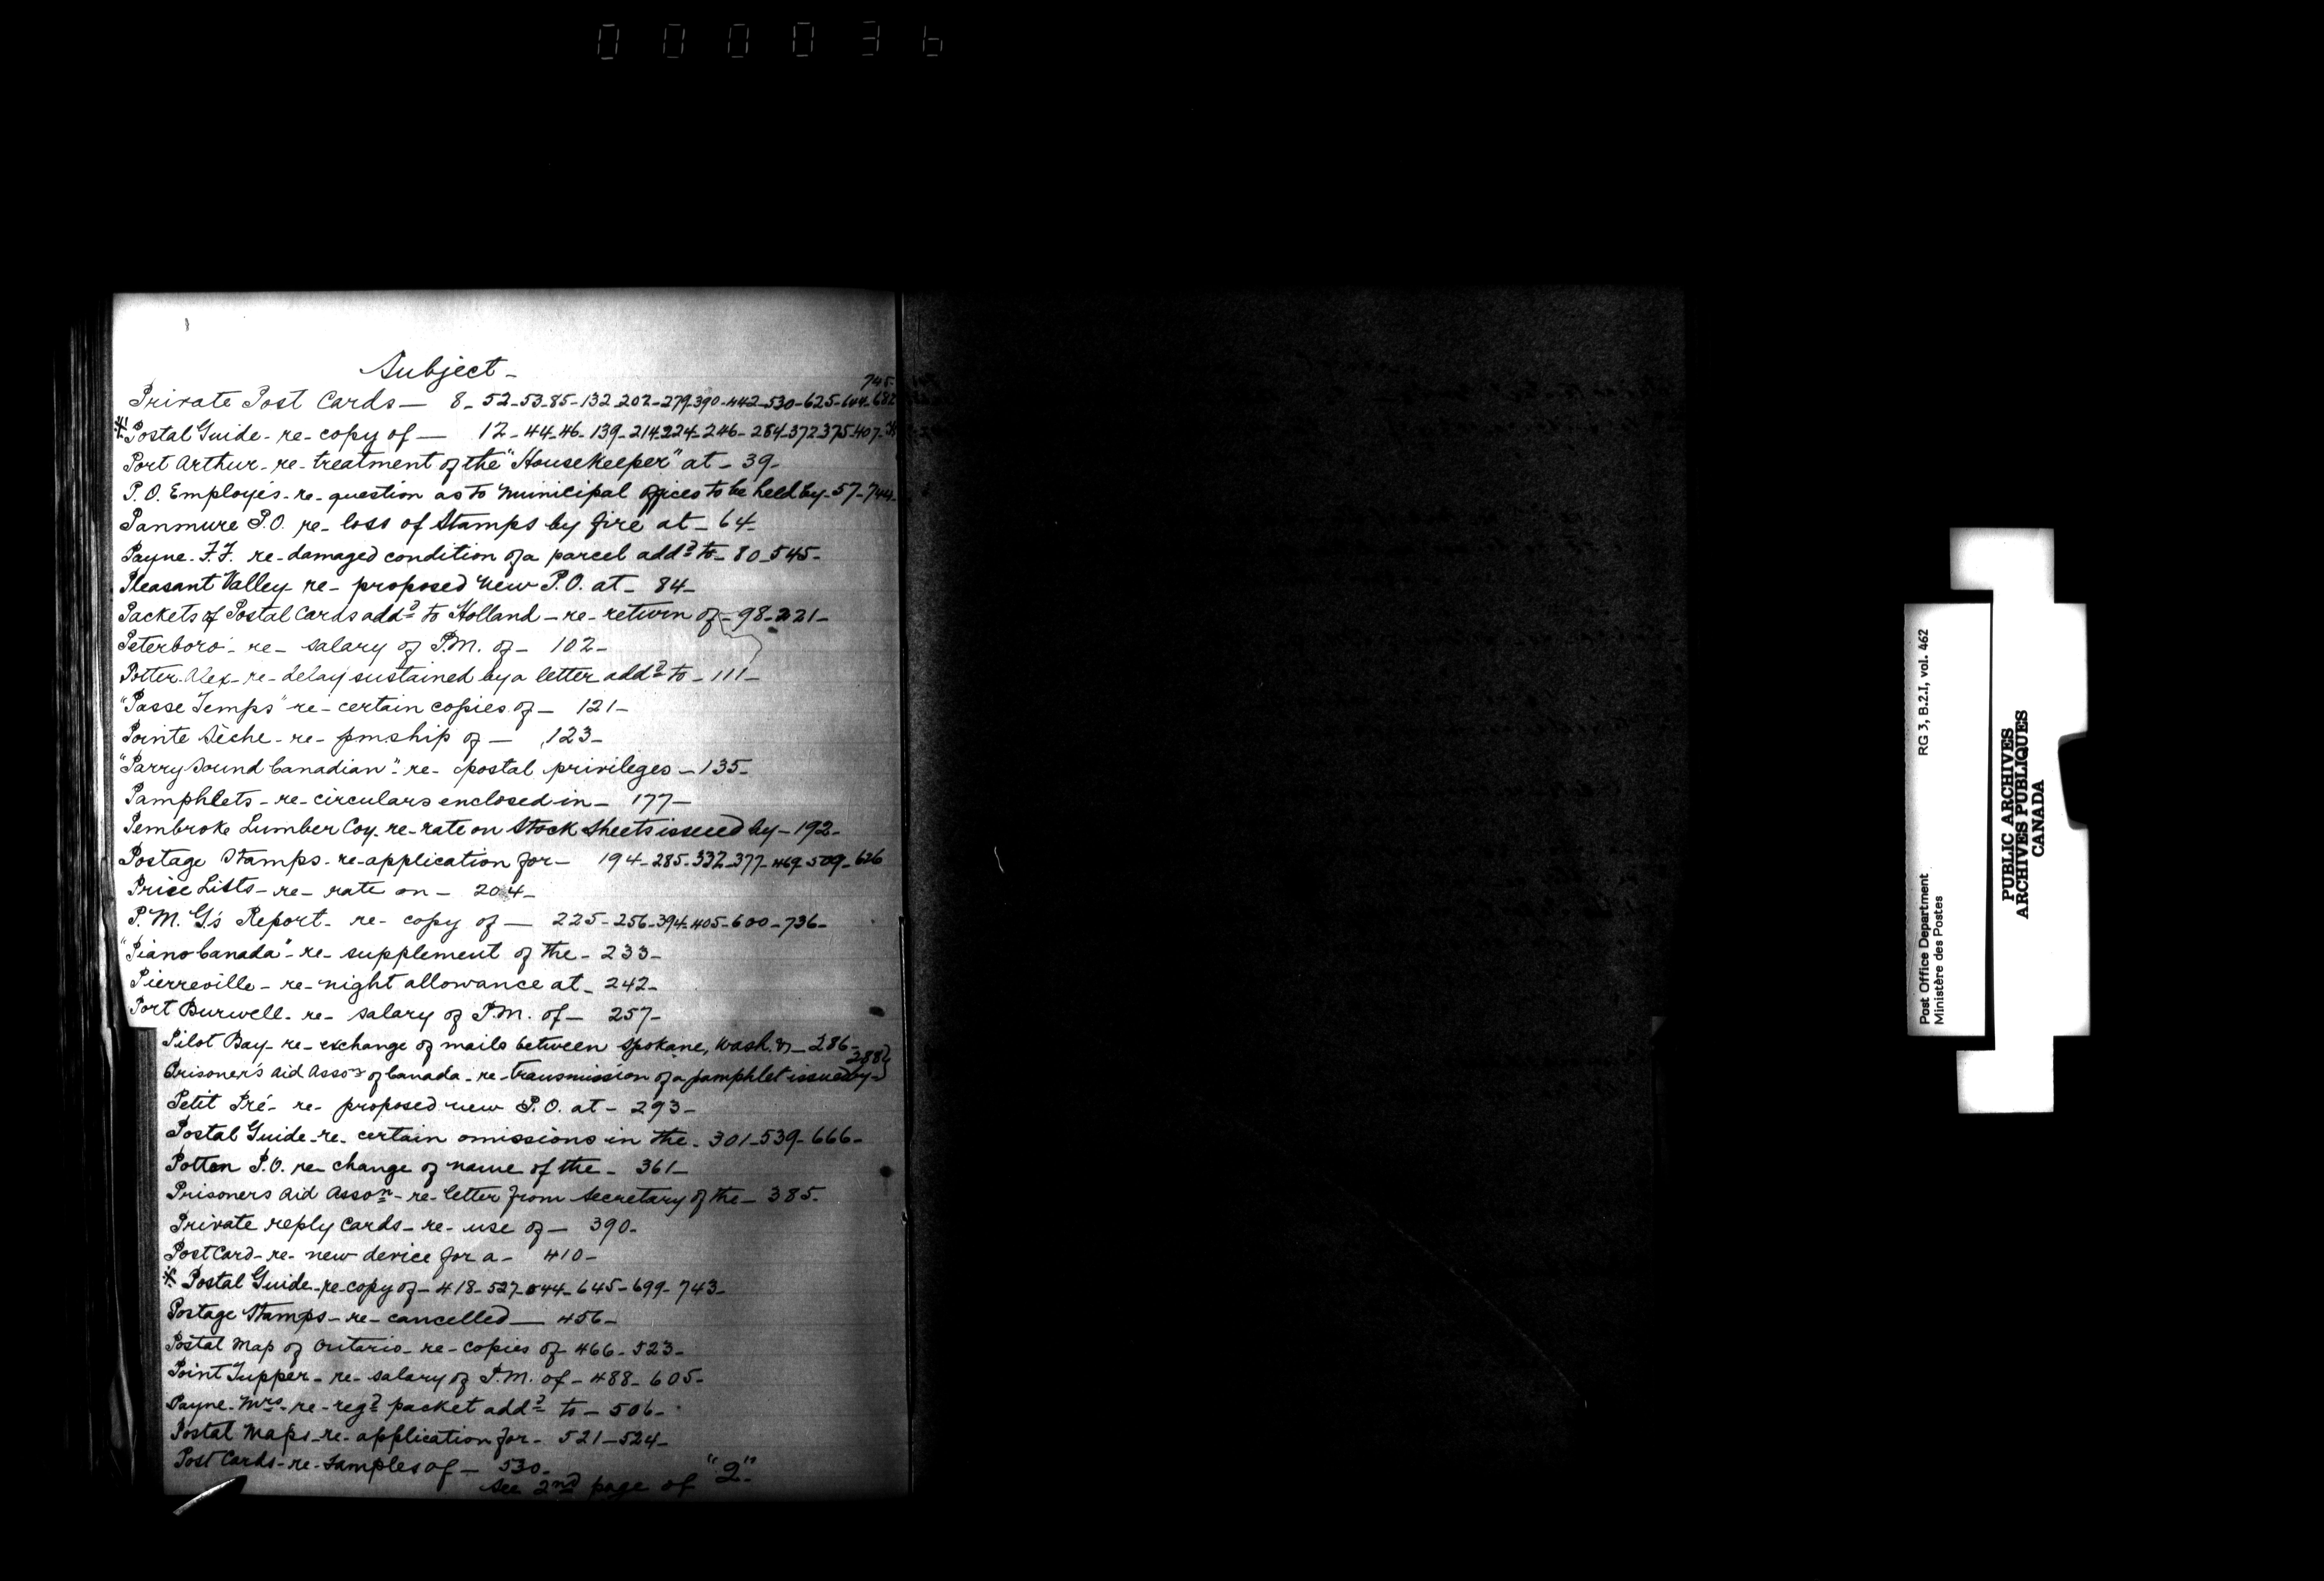 000036
Subject -
745-
Private Post Cards - 8 - 52 - 53 - 85 - 132 - 202 - 279 - 390 - 442 - 530 - 625 - 644 - 682
* Postal Guide - re - copy of - 12 - 44 - 46 - 139 - 214 - 224 - 246 - 284 - 372 - 375 - 407 -
Port Arthur - re - treatment of the "Housekeeper" at - 39 -
P.O. Employés - re - question as to municipal offices to be held by - 57 - 744 -
Panmure P.O. re - loss of stamps by fire at - 64 -
Payne - F.F. re - damaged condition of a parcel addd to - 80 - 545 -
Pleasant Valley - re - proposed new P.O. at - 84 -
Packets of Postal Cards addd to Holland - re - return of - 98 - 221 -
Peterboro' - re - salary of P.M. of - 102 -
Potter - Alex - re - delay sustained by a letter addd to - 111 -
"Passe Temps" re - certain copies of - 121 -
Pointe Sèche - re - pmship of - 123 -
"Parry Sound Canadian" - re - postal privileges - 135 -
Pamphlets - re - circulars enclosed in - 177 -
Pembroke Lumber Coy - re - rate on stock sheets issued by - 192 -
Postage Stamps - re - application for - 194 - 285 - 332 - 377 - 469 - 509 - 626
Price Lists - re - rate on - 204 -
P.M.G's Report - re - copy of - 225 - 256 - 394 - 405 - 600 - 736 -
"Piano Canada" - re - supplement of the - 233 -
Pierreville - re - night allowance at - 242 -
Port Burwell - re - salary of P.M. of - 257 -
Pilot Bay - re - exchange of mails between Spokane, Wash. & - 286 -
288}
Prisoner's Aid Asson of Canada - re - transmission of a pamphlet issued by - }
Petit Pré - re - proposed new P.O. at - 293 -
Postal Guide - re - certain omissions in the - 301 - 539 - 666 -
Potton P.O. re - change of name of the - 361 -
Prisoners Aid Asson - re - letter from Secretary of the - 385 -
Private reply Cards - re - use of - 390 -
Post Card - re - new device for a - 410 -
* Postal Guide - re - copy of - 418 - 527 - 644 - 645 - 699 - 743 -
Postage Stamps - re - cancelled - 456 -
Postal Map of Ontario - re - copies of 466 - 523 -
Point Tupper - re - salary of P.M. of - 488 - 605 -
Payne - Mrs - re - regd packet addd to - 506 -
Postal Maps - re - application for - 521 - 524 -
Post Cards - re - samples of - 530 -
See 2nd page of "Q"
Post Office Department RG 3, B.2.I, vol. 462
Ministère des Postes
PUBLIC ARCHIVES
ARCHIVES PUBLIQUES
CANADA